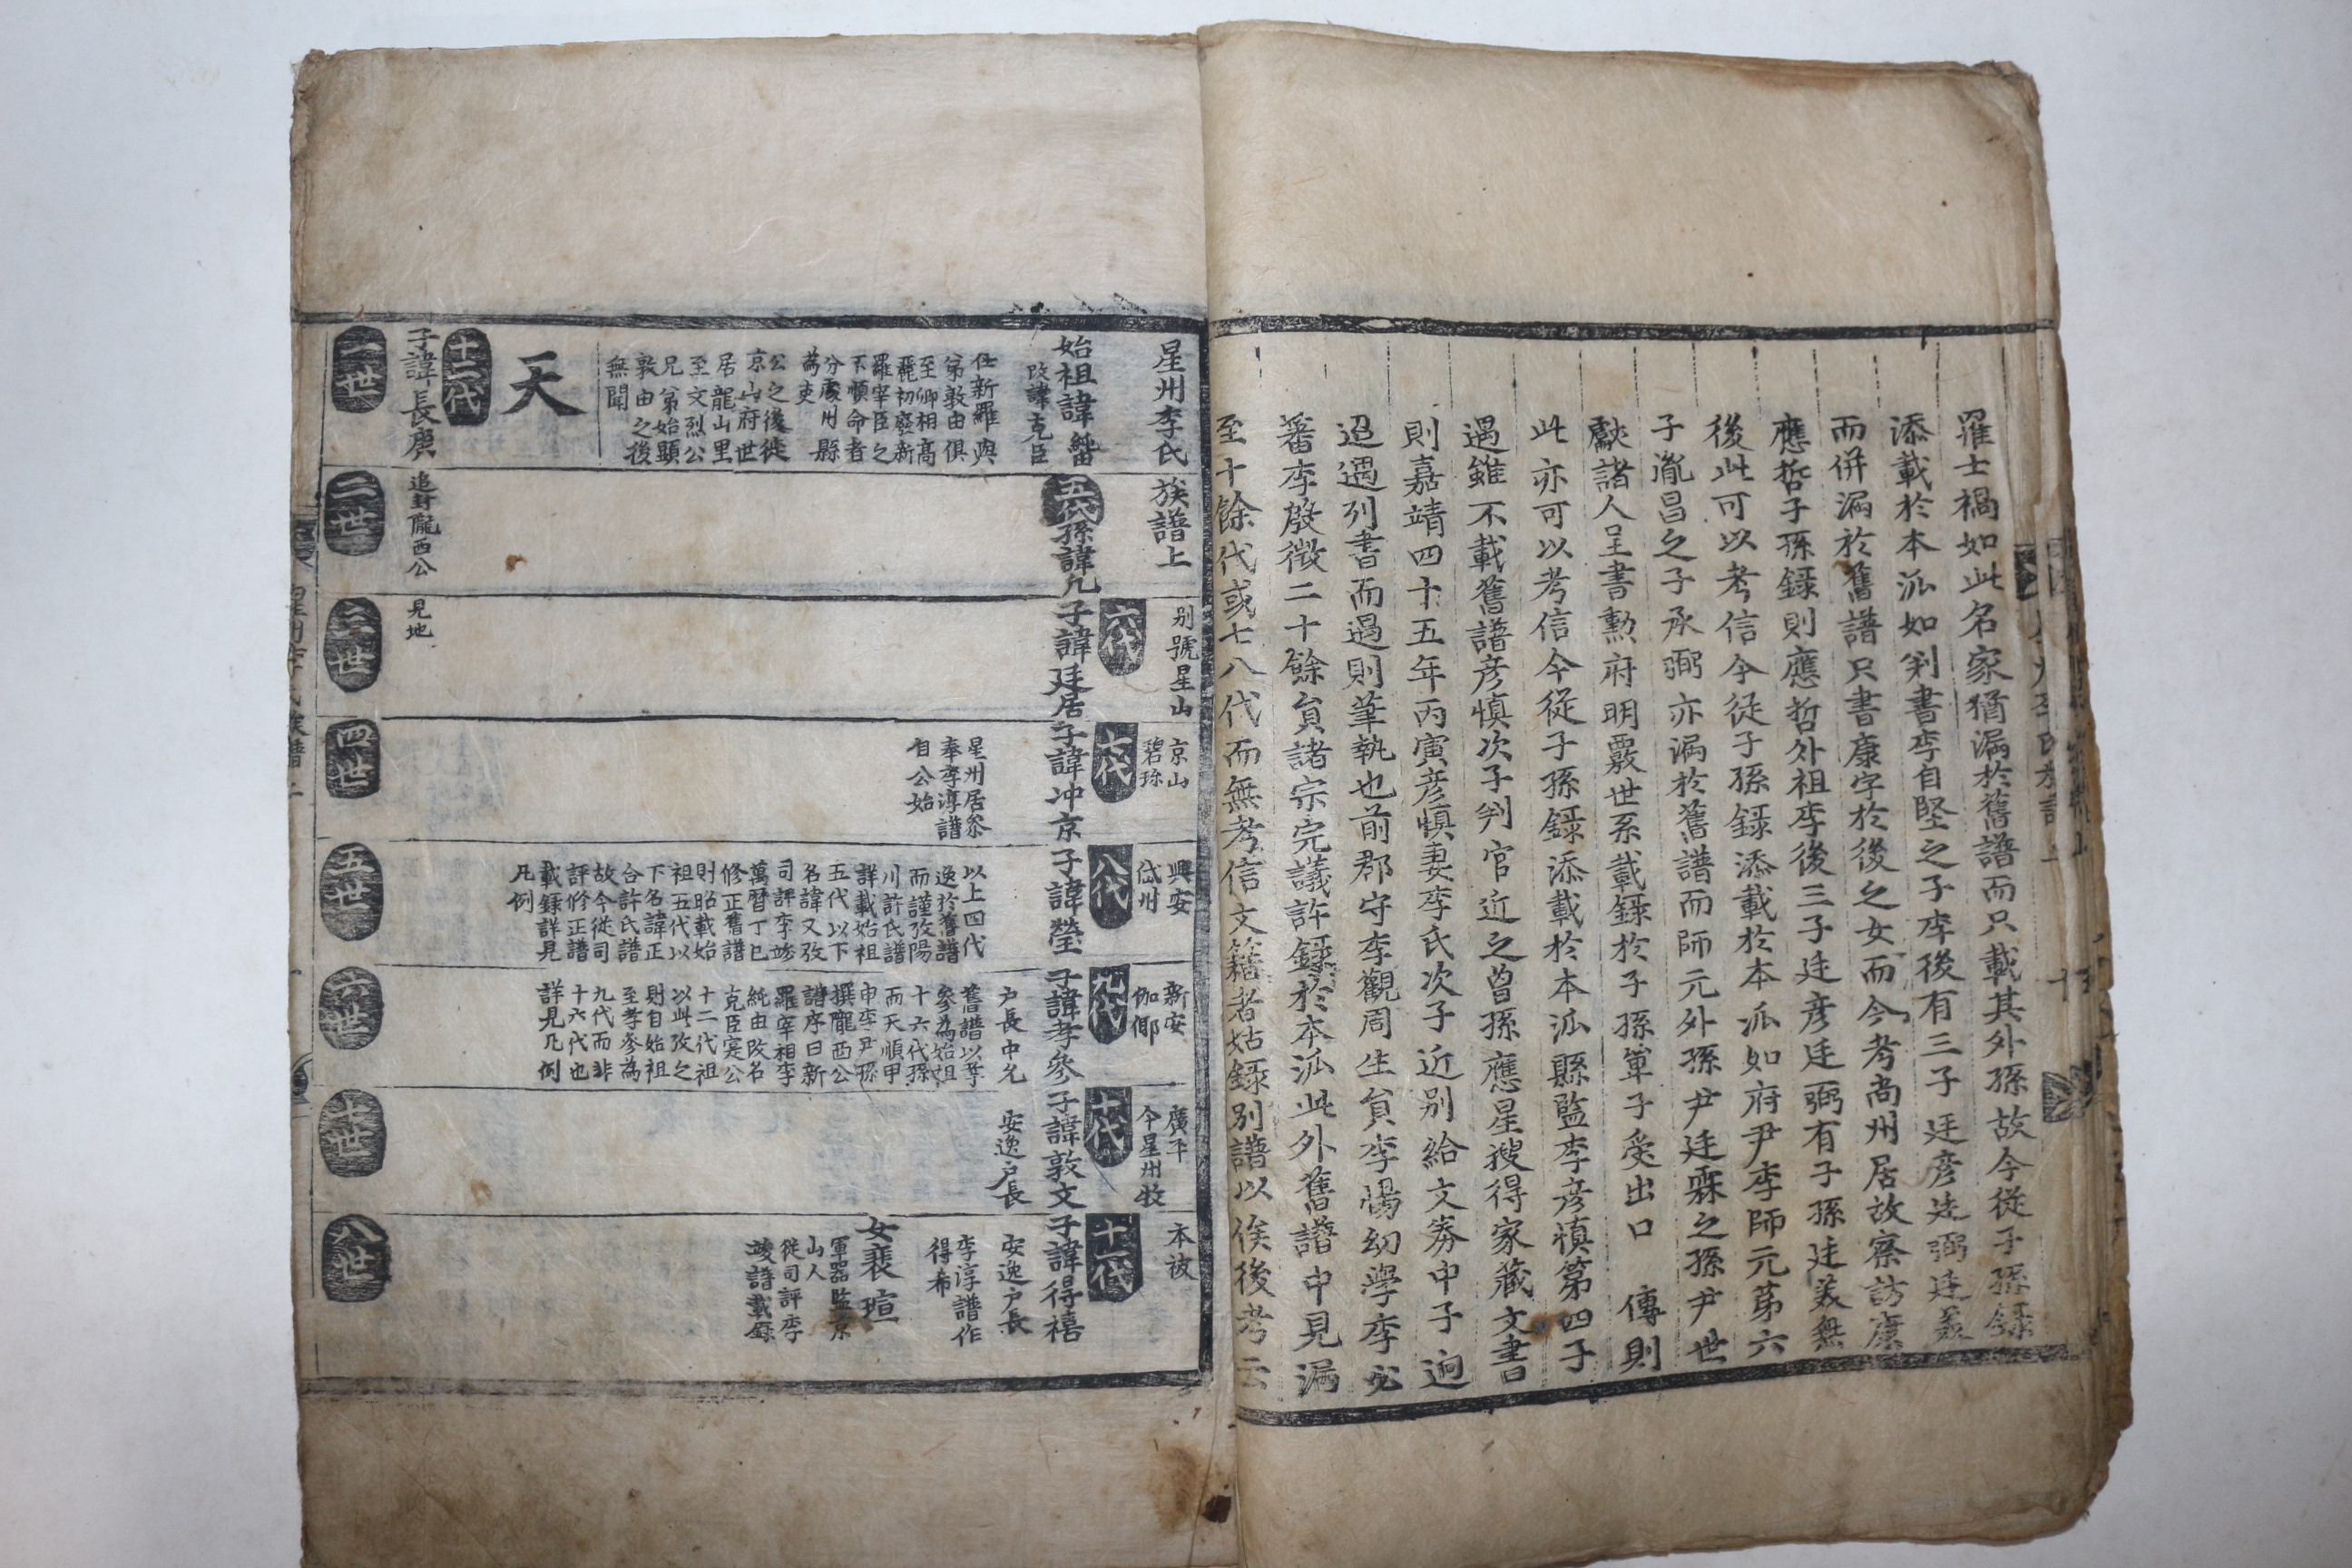 羅士禍如此名家猶漏於舊譜而只載其外孫故今從子孫錄
添載於本派如判書李自堅之子李後有三子廷彦廷弼廷義
而併漏於舊譜只書康字於後之女而今考尚州居故察訪康
應哲子孫錄則應哲外祖李後三子廷彦廷弼有子孫廷義無
後此可以考信今從子孫錄添載於本派如府尹李師元第六
子胤昌之子承弼亦漏於舊譜而師元外孫尹廷霖之孫尹世
獻諸人呈書勲府明覈世系載錄於子孫單子受出口 傳則
此亦可以考信今從子孫錄添載於本派縣監李彦慎第四子
遇雖不載舊譜彦慎次子判官近之曾孫應星搜得家藏文書
則嘉靖四十五年丙寅彦慎妻李氏次子近別給文券中子逈
迢遇列書而遇則筆執也前郡守李觀周生員李惕幼學李必
蕃李殷徵二十餘員諸宗完議許錄於本派此外舊譜中見漏
至十餘代或七八代而無考信文籍者姑錄別譜以俟後考云
星州李氏
族譜上
別號星山
京山
碧珍
興安
岱州
新安
伽倻
廣平
今星州牧
本被
始祖諱純由
改諱克臣
仕新羅與
弟敦由俱
至卿相高
麗初廢新
羅宰臣之
不順命者
分處州縣
為吏
公之後徙
京山府世
居龍山里
至文烈公
兄弟始顯
敦由之後
無聞
五代
孫諱允
六代
子諱廷居
七代
子諱冲京
星州居參
奉李淳譜
自公始
八代
子諱瑩
以上四代
逸於舊譜
而謹攷陽
川許氏譜
詳載始祖
五代以下
名諱又攷
司評李竣
萬曆丁巳
修正舊譜
則昭載始
祖五代以
下名諱正
合許氏譜
故今從司
評修正譜
載錄詳見
凡例
九代
子諱孝參
戶長中允
舊譜以孝
參為始祖
十六代孫
而天順甲
申李尹孫
撰隴西公
譜序曰新
羅宰相李
純由改名
克臣寔公
十二代祖
以此攷之
則自始祖
至孝參為
九代而非
十六代也
詳見凡例
十代
子諱敦文
安逸戶長
十一代
子諱得禧
安逸戶長
李淳譜作
得希
女裵瑄
軍器監京
山人
從司評李
竣譜載錄
天
十二代
子諱長庚
追封隴西公
見地
一世
二世
三世
四世
五世
六世
七世
八世